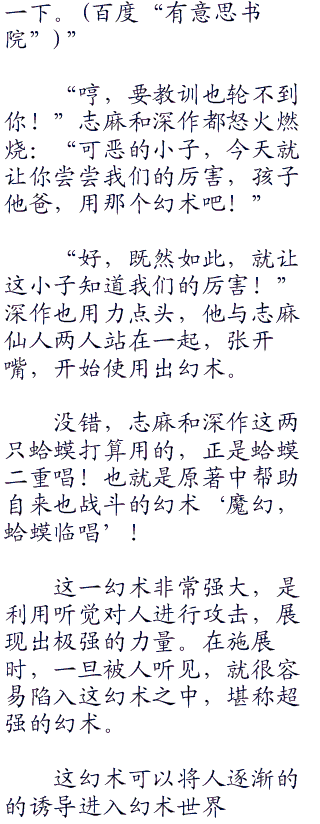 一下。(百度“有意思书
院”)”
“哼，要教训也轮不到
你！”志麻和深作都怒火燃
烧：“可恶的小子，今天就
让你尝尝我们的厉害，孩子
他爸，用那个幻术吧！”
“好，既然如此，就让
这小子知道我们的厉害！”
深作也用力点头，他与志麻
仙人两人站在一起，张开
嘴，开始使用出幻术。
没错，志麻和深作这两
只蛤蟆打算用的，正是蛤蟆
二重唱！也就是原著中帮助
自来也战斗的幻术‘魔幻，
蛤蟆临唱’！
这一幻术非常强大，是
利用听觉对人进行攻击，展
现出极强的力量。在施展
时，一旦被人听见，就很容
易陷入这幻术之中，堪称超
强的幻术。
这幻术可以将人逐渐的
的诱导进入幻术世界